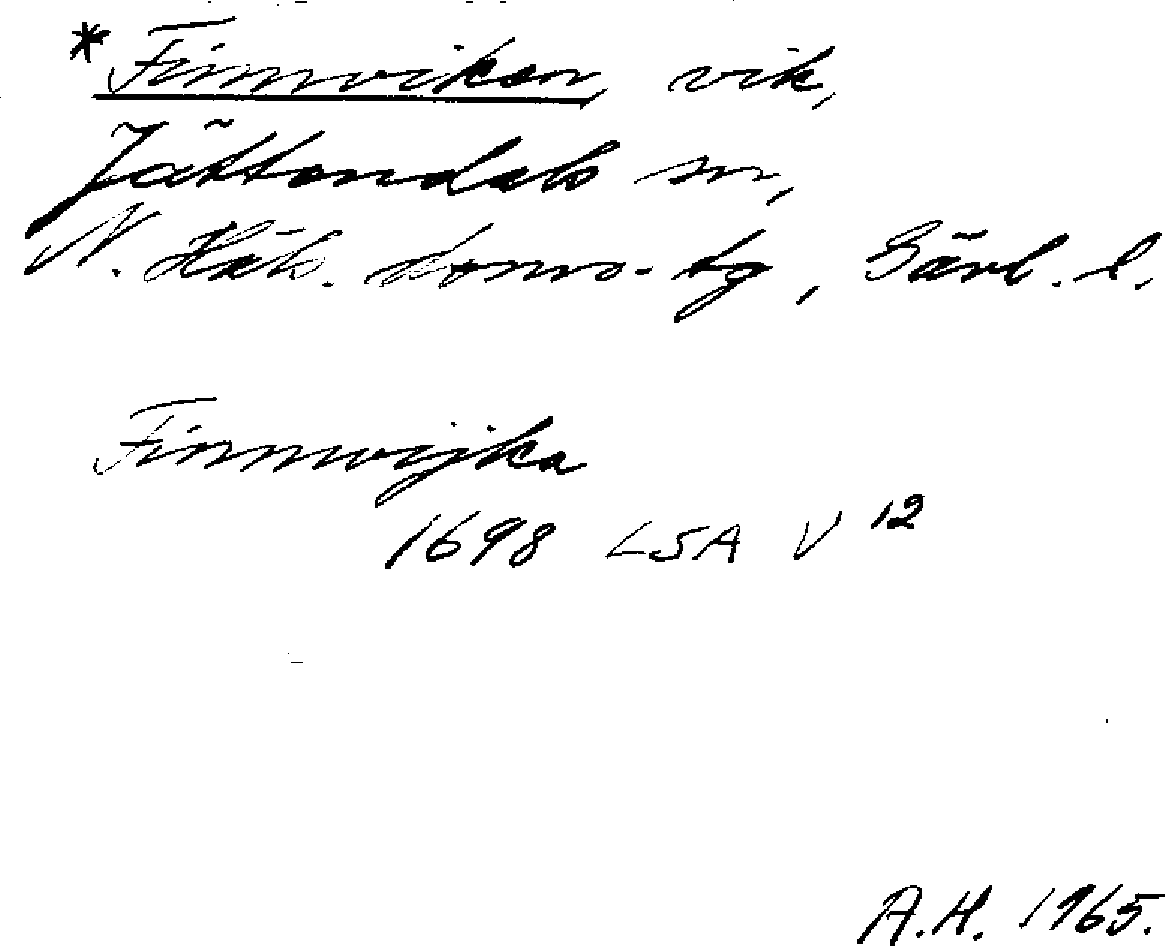 *Finnviken, vik,
Jättendals sn,
N. Häls. doms.-tg, Gävl. l.
Finnwijka
1698 LSA V 12
A.H. 1965.